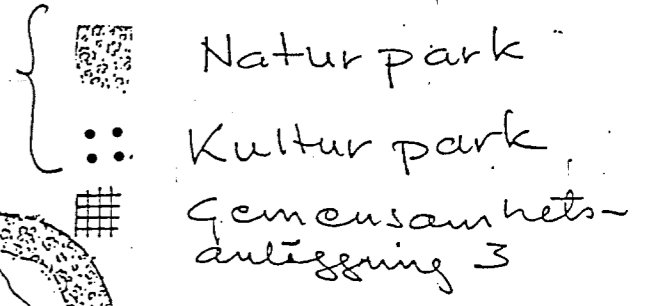 Naturpark
Kulturpark
Gemensamhets-
anläggning 3